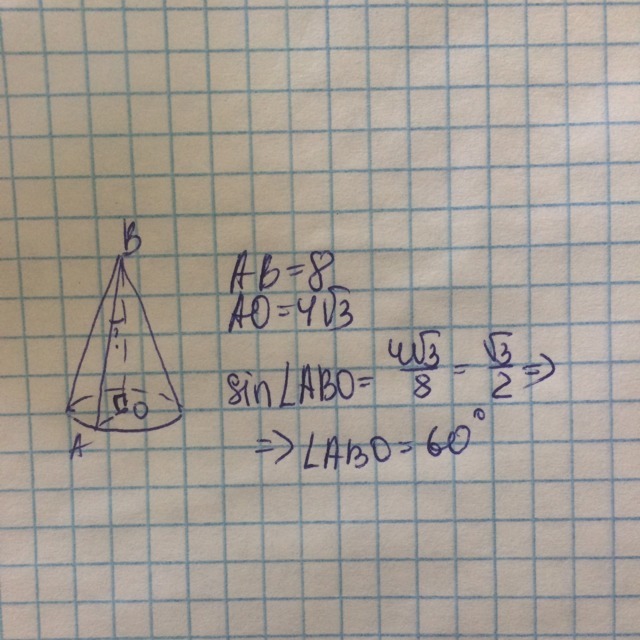 B
AB=8
AO=4√3
sin∠ABO= 4√3/8 = √3/2 =>
O
A
=> ∠ABO=60°